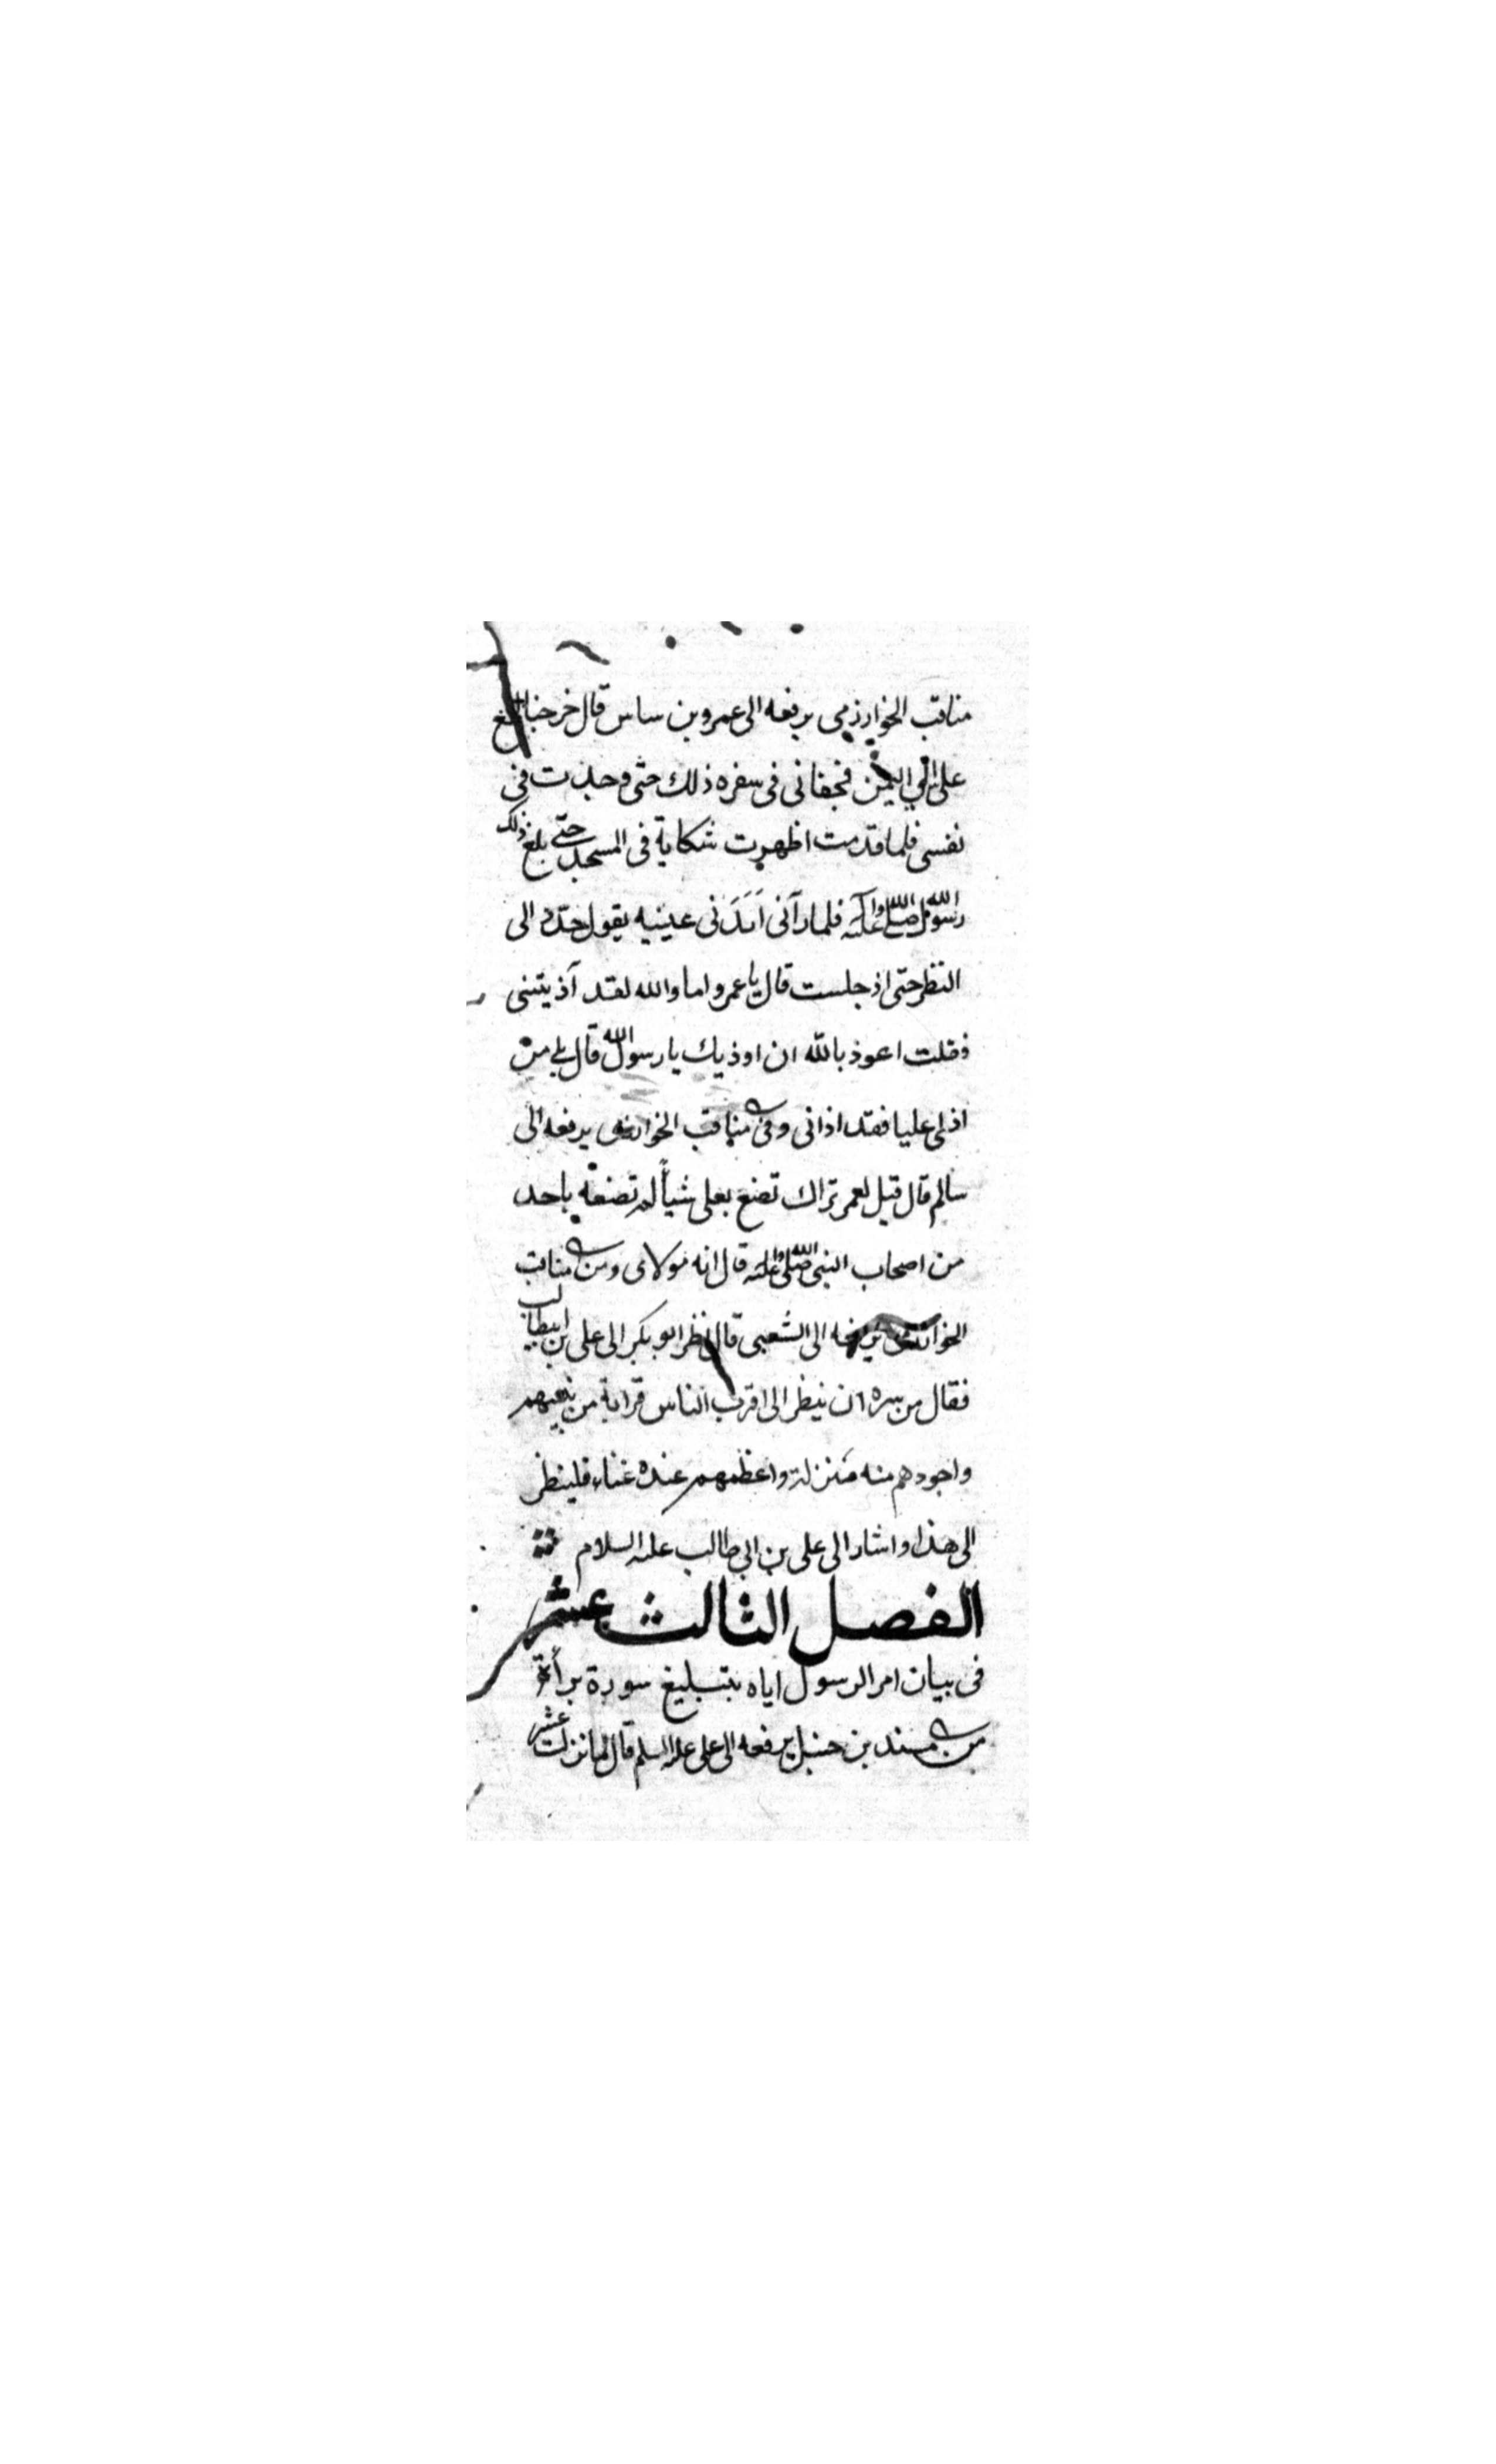 مناقب الخوارزمى يرفعه الى عمرو بن ساس قال خرجنا مع
على الى اليمن فجفانى فى سفره ذلك حتى وجدت فى
نفسى فلما قدمت اظهرت شكاية فى المسجد حتى بلغ ذلك
رسول الله صلى الله عليه وآله فلما رآنى اَبَدَنى عينيه يقول حدد الى
النظر حتى اذ جلست قال يا عمرو اما والله لقد آذيتنى
فقلت اعوذ بالله ان اوذيك يا رسول الله قال بلى من
اذى عليا فقد اذانى وفى مناقب الخوارزمى يرفعه الى
سالم قال قيل لعمر تراك تصنع بعلى شيأً لم تصنعه باحد
من اصحاب النبى صلى الله عليه قال انه مولاى ومن مناقب
الخوارزمى يرفعه الى الشعبى قال نظر ابو بكر الى على بن ابيطالب
فقال من سره ان ينظر الى اقرب الناس قرابة من نبيهم
واجودهم منه منزلة واعظمهم عنده غناء فلينظر
الى هذا واشار الى على بن ابى طالب عليه السلام
الفصل الثالث عشر
فى بيان امر الرسول اياه بتبليغ سورة برأة
من مسند بن حنبل يرفعه الى على عليه السلم قال لما نزلت عشر